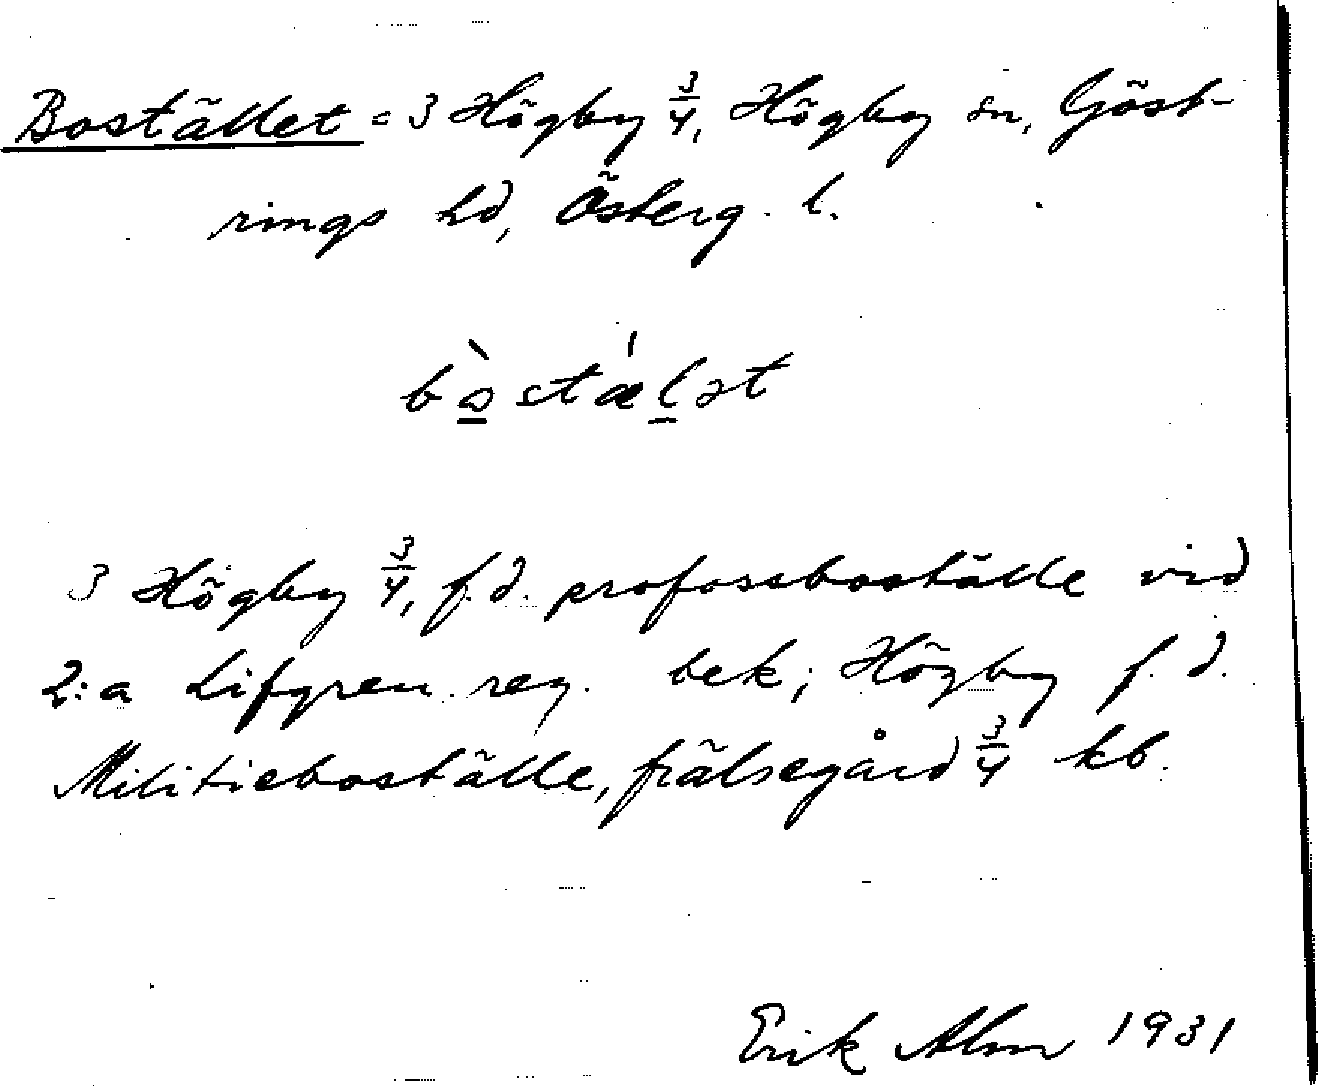 Bostället = 3 Högby 3/4, Högby sn, Göst-
rings hd, Österg. l.
bòstǽlət
3 Högby 3/4, f.d. profossboställe vid
2:a Lifgren. reg. bek; Högby f.d.
Militieboställe, frälsegård 3/4 kb.
Erik Alm 1931